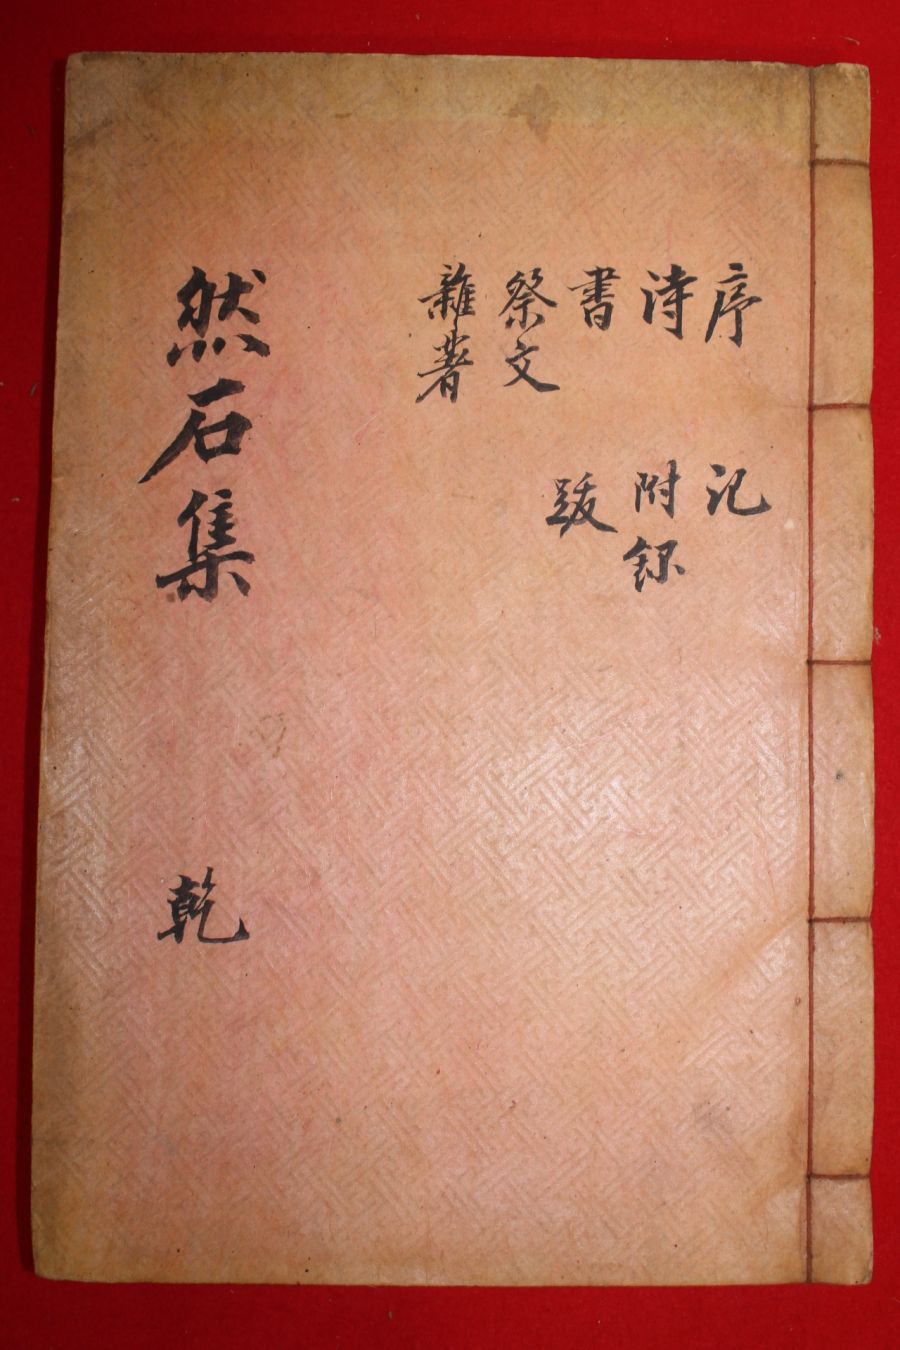 序
詩
書
祭文
雜著
記
附錄
跋
然石集
乾